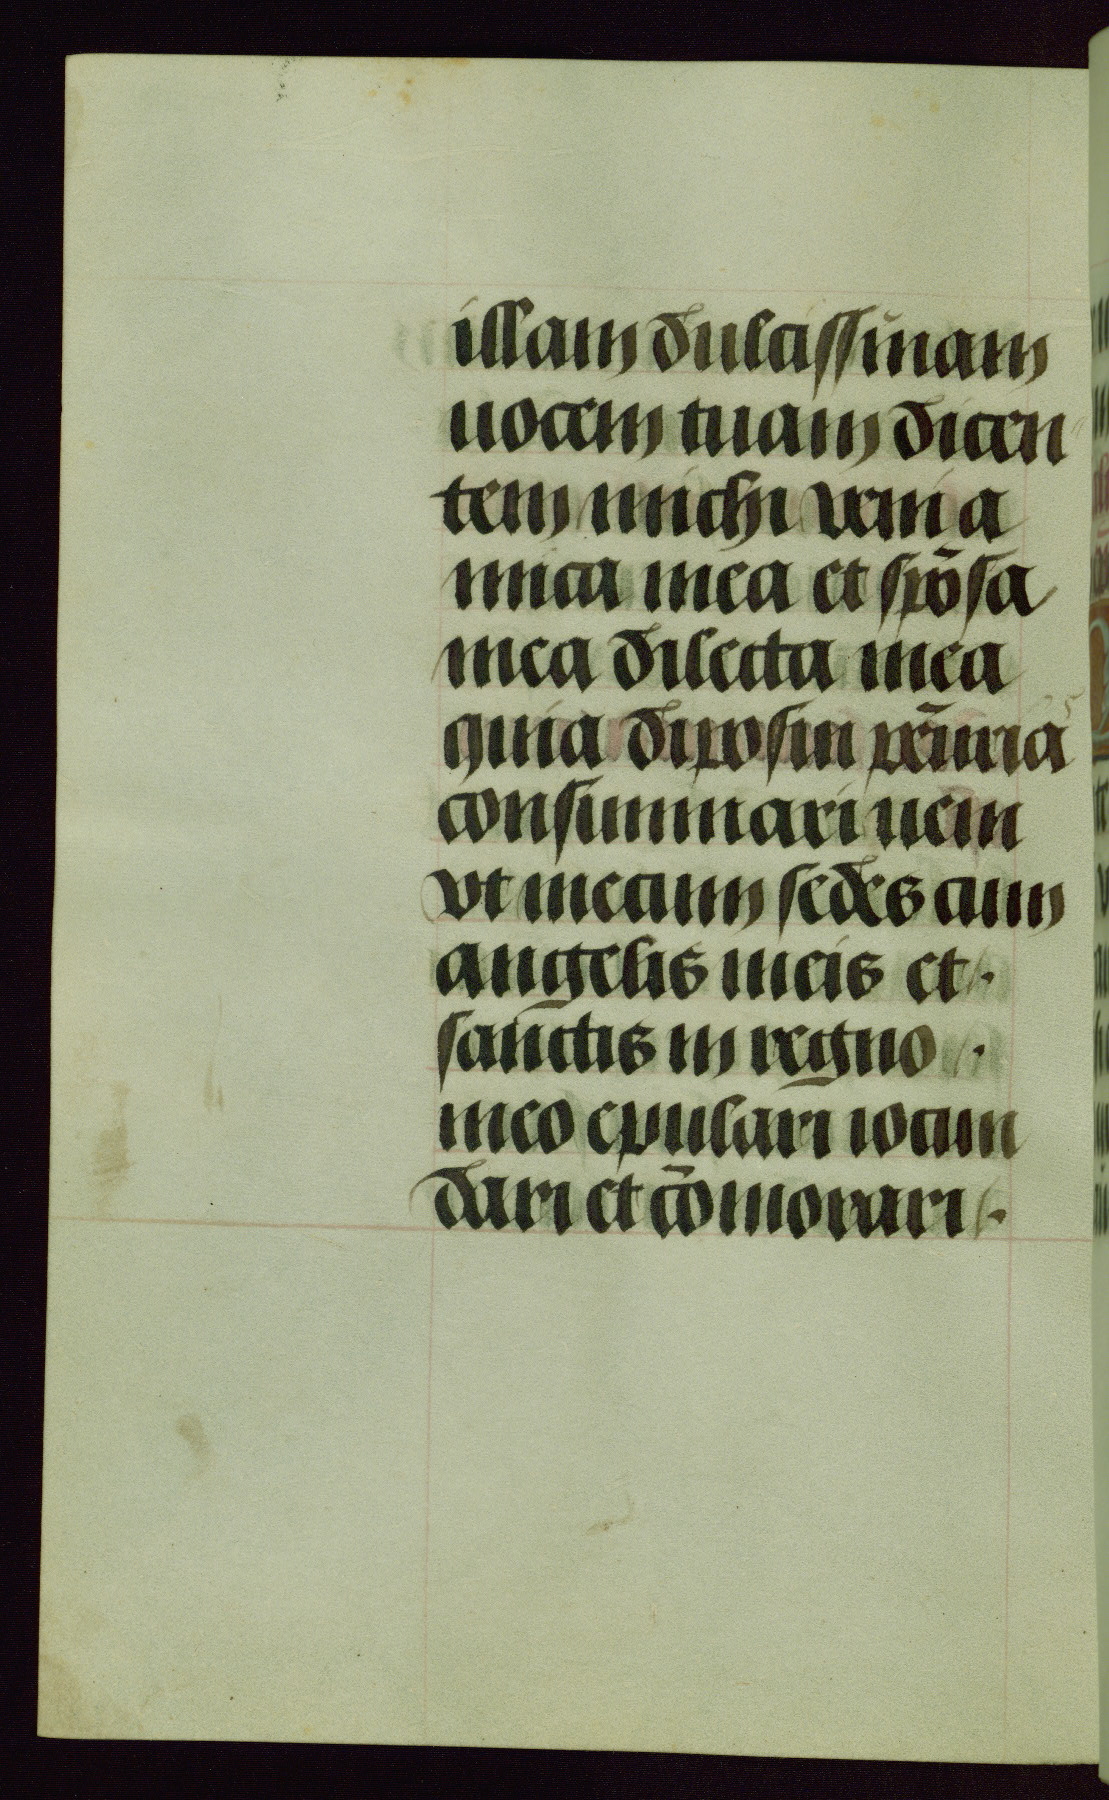 illam dulcissimam
uocem tuam dicen
tem michi veni a
mica mea et spõsa
mea dilecta mea
quia diposui pẽuria
consummari ueni
vt mecum sedes cum
angelis meis et
sanctis in regno
meo epulari iocun
dari et cõmorari